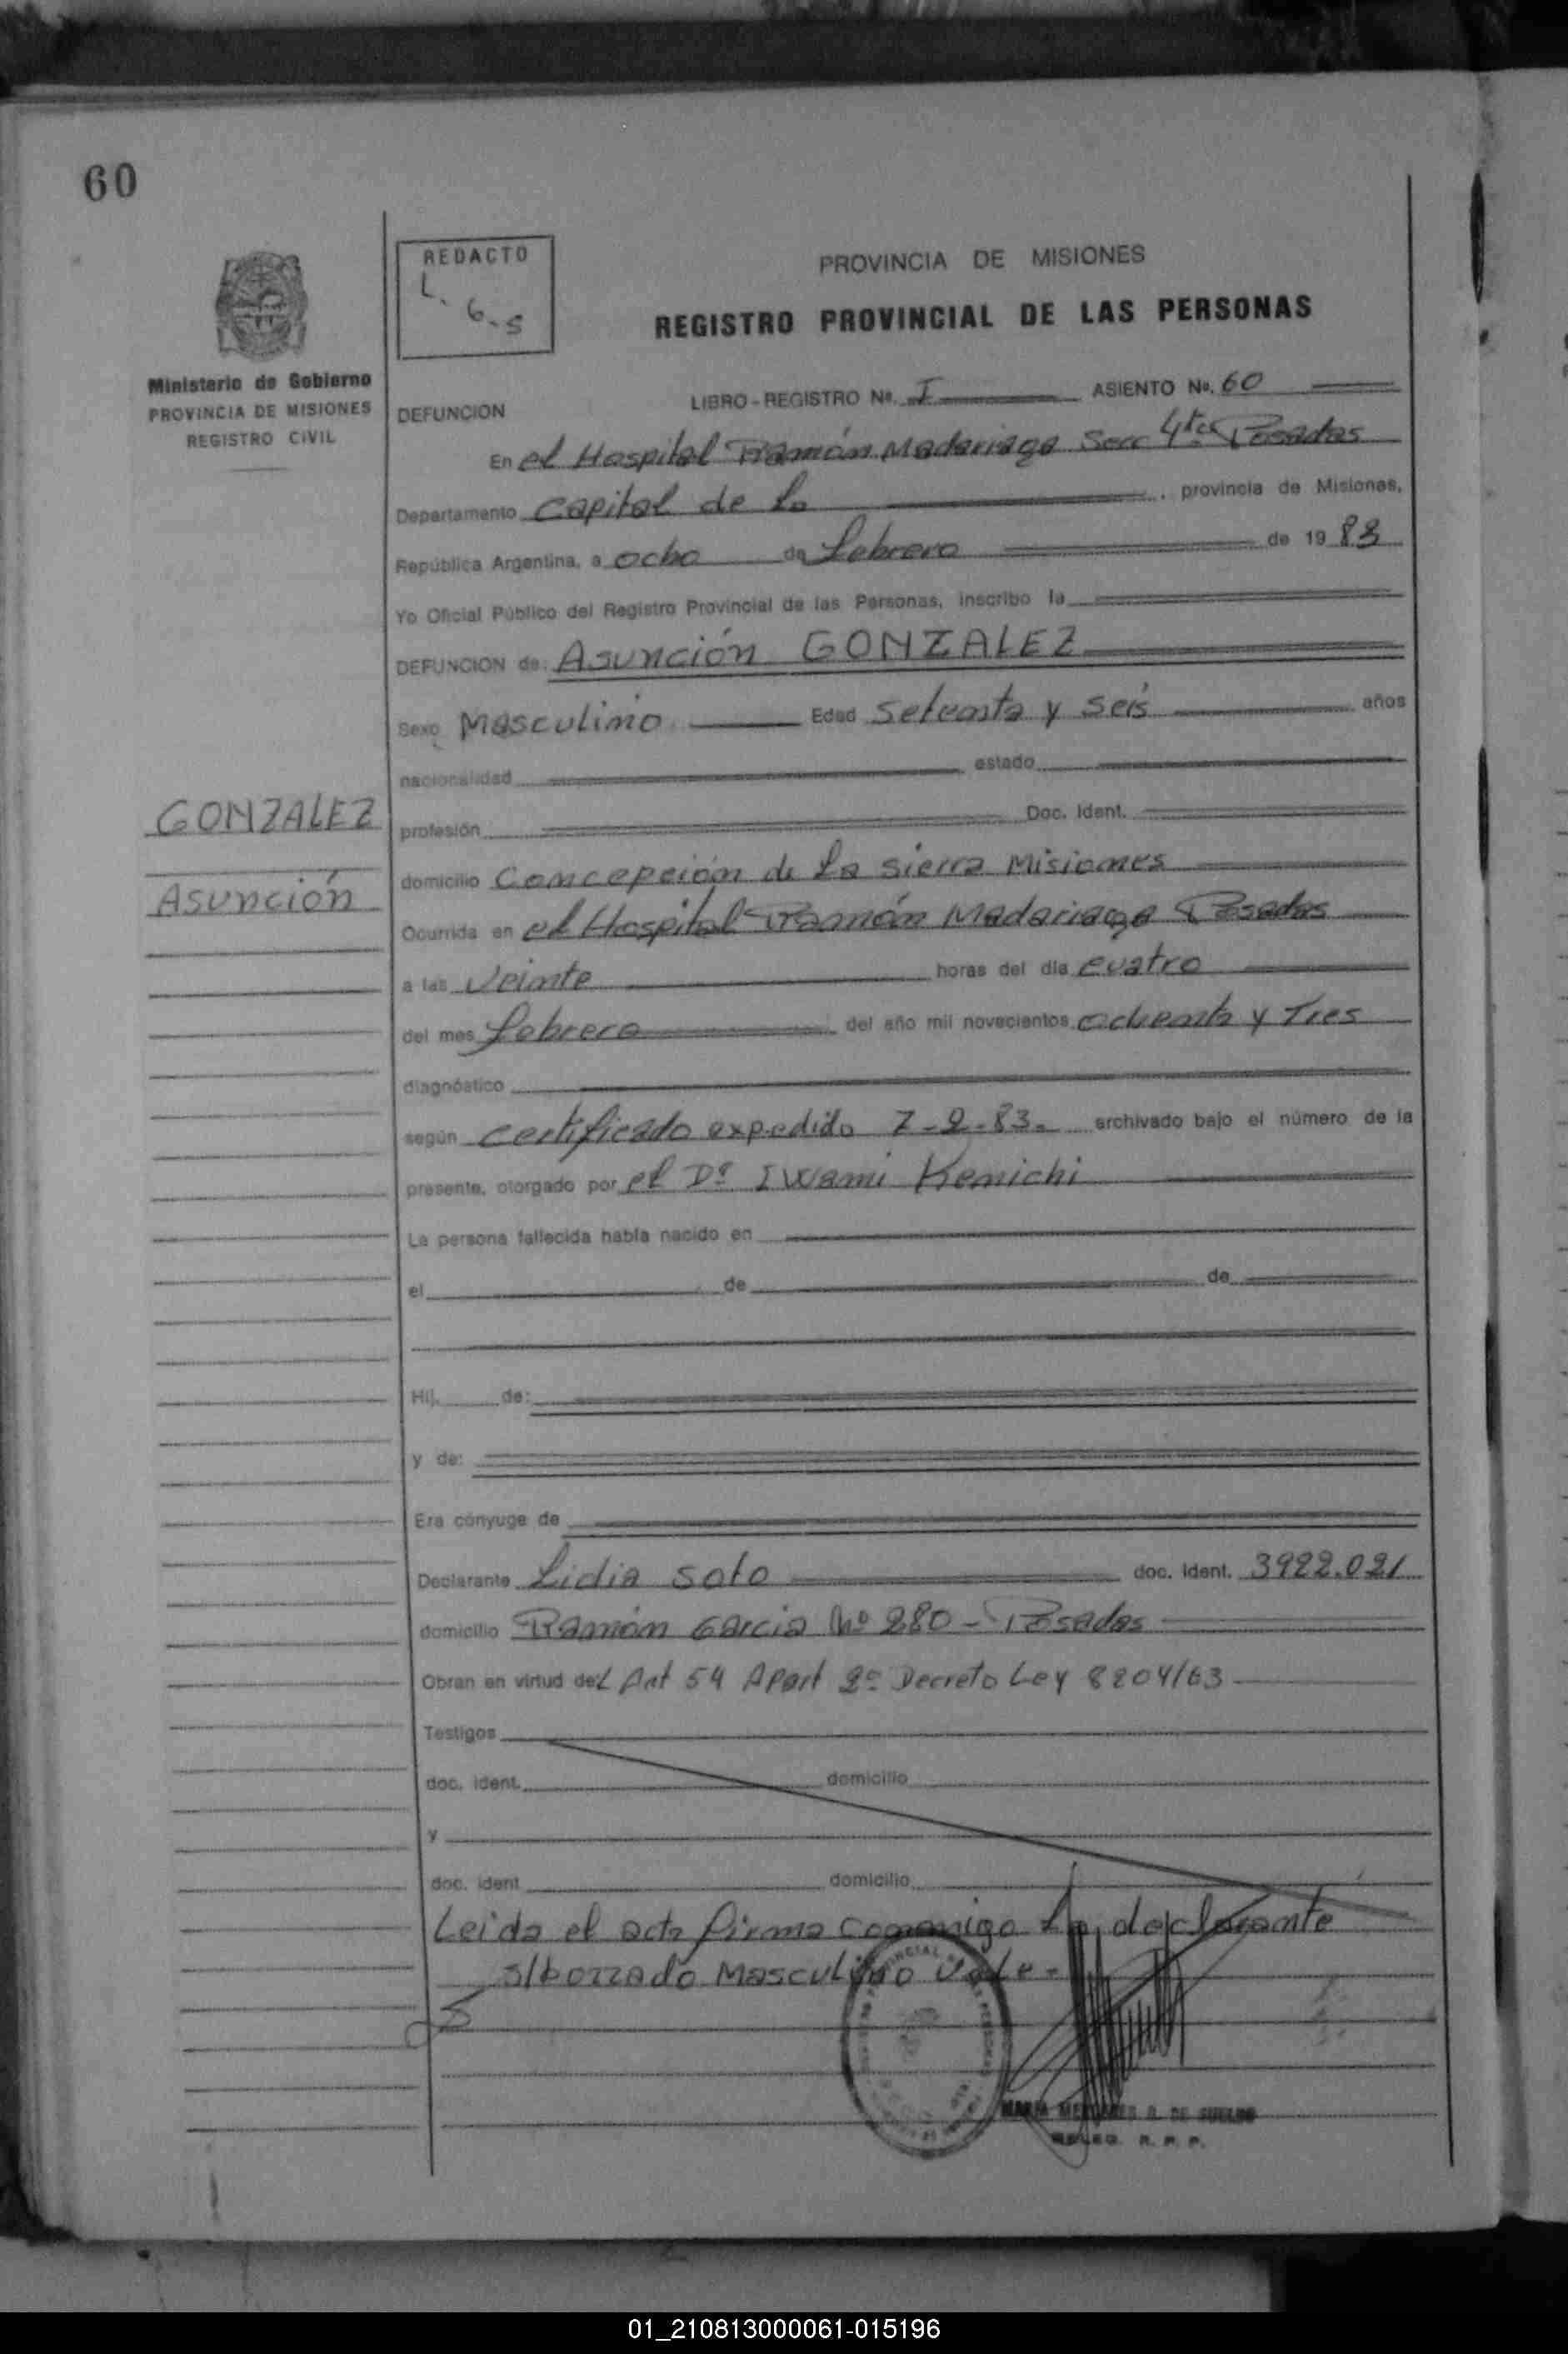 60
REDACTO
L. G. S
PROVINCIA DE MISIONES
REGISTRO PROVINCIAL DE LAS PERSONAS
Ministerio de Gobierno
PROVINCIA DE MISIONES
REGISTRO CIVIL
DEFUNCION LIBRO-REGISTRO Nº. I ASIENTO Nº. 60
En el Hospital Ramón Madariaga Secc 4ta Posadas
Departamento Capital de la , provincia de Misiones,
República Argentina, a ocho de febrero de 1983
Yo Oficial Público del Registro Provincial de las Personas, inscribo la
DEFUNCION de: Asunción GONZALEZ
Sexo Masculino Edad setenta y seis años
nacionalidad estado
GONZALEZ
Asunción
profesión Doc. Ident.
domicilio Concepción de la Sierra Misiones
Ocurrida en el Hospital Ramón Madariaga Posadas
a las veinte horas del día cuatro
del mes febrero del año mil novecientos ochenta y Tres
diagnóstico
según certificado expedido 7-2-83. archivado bajo el número de la
presente, otorgado por el Dr Iwami Kenichi
La persona fallecida había nacido en
el de de
Hij de:
y de:
Era cónyuge de
Declarante Lidia Soto doc. Ident. 3922.021
domicilio Ramón Garcia Nº 280 - Posadas
Obran en virtud del Art 54 Apart 2º Decreto Ley 8204/63
Testigos
doc. ident. domicilio
y
doc. ident domicilio
Leida el acta firma conmigo la declarante
s/borrado Masculino Vale-
MARIA MERCEDES R. DE
DELEG. R. P. P.
01_210813000061-015196